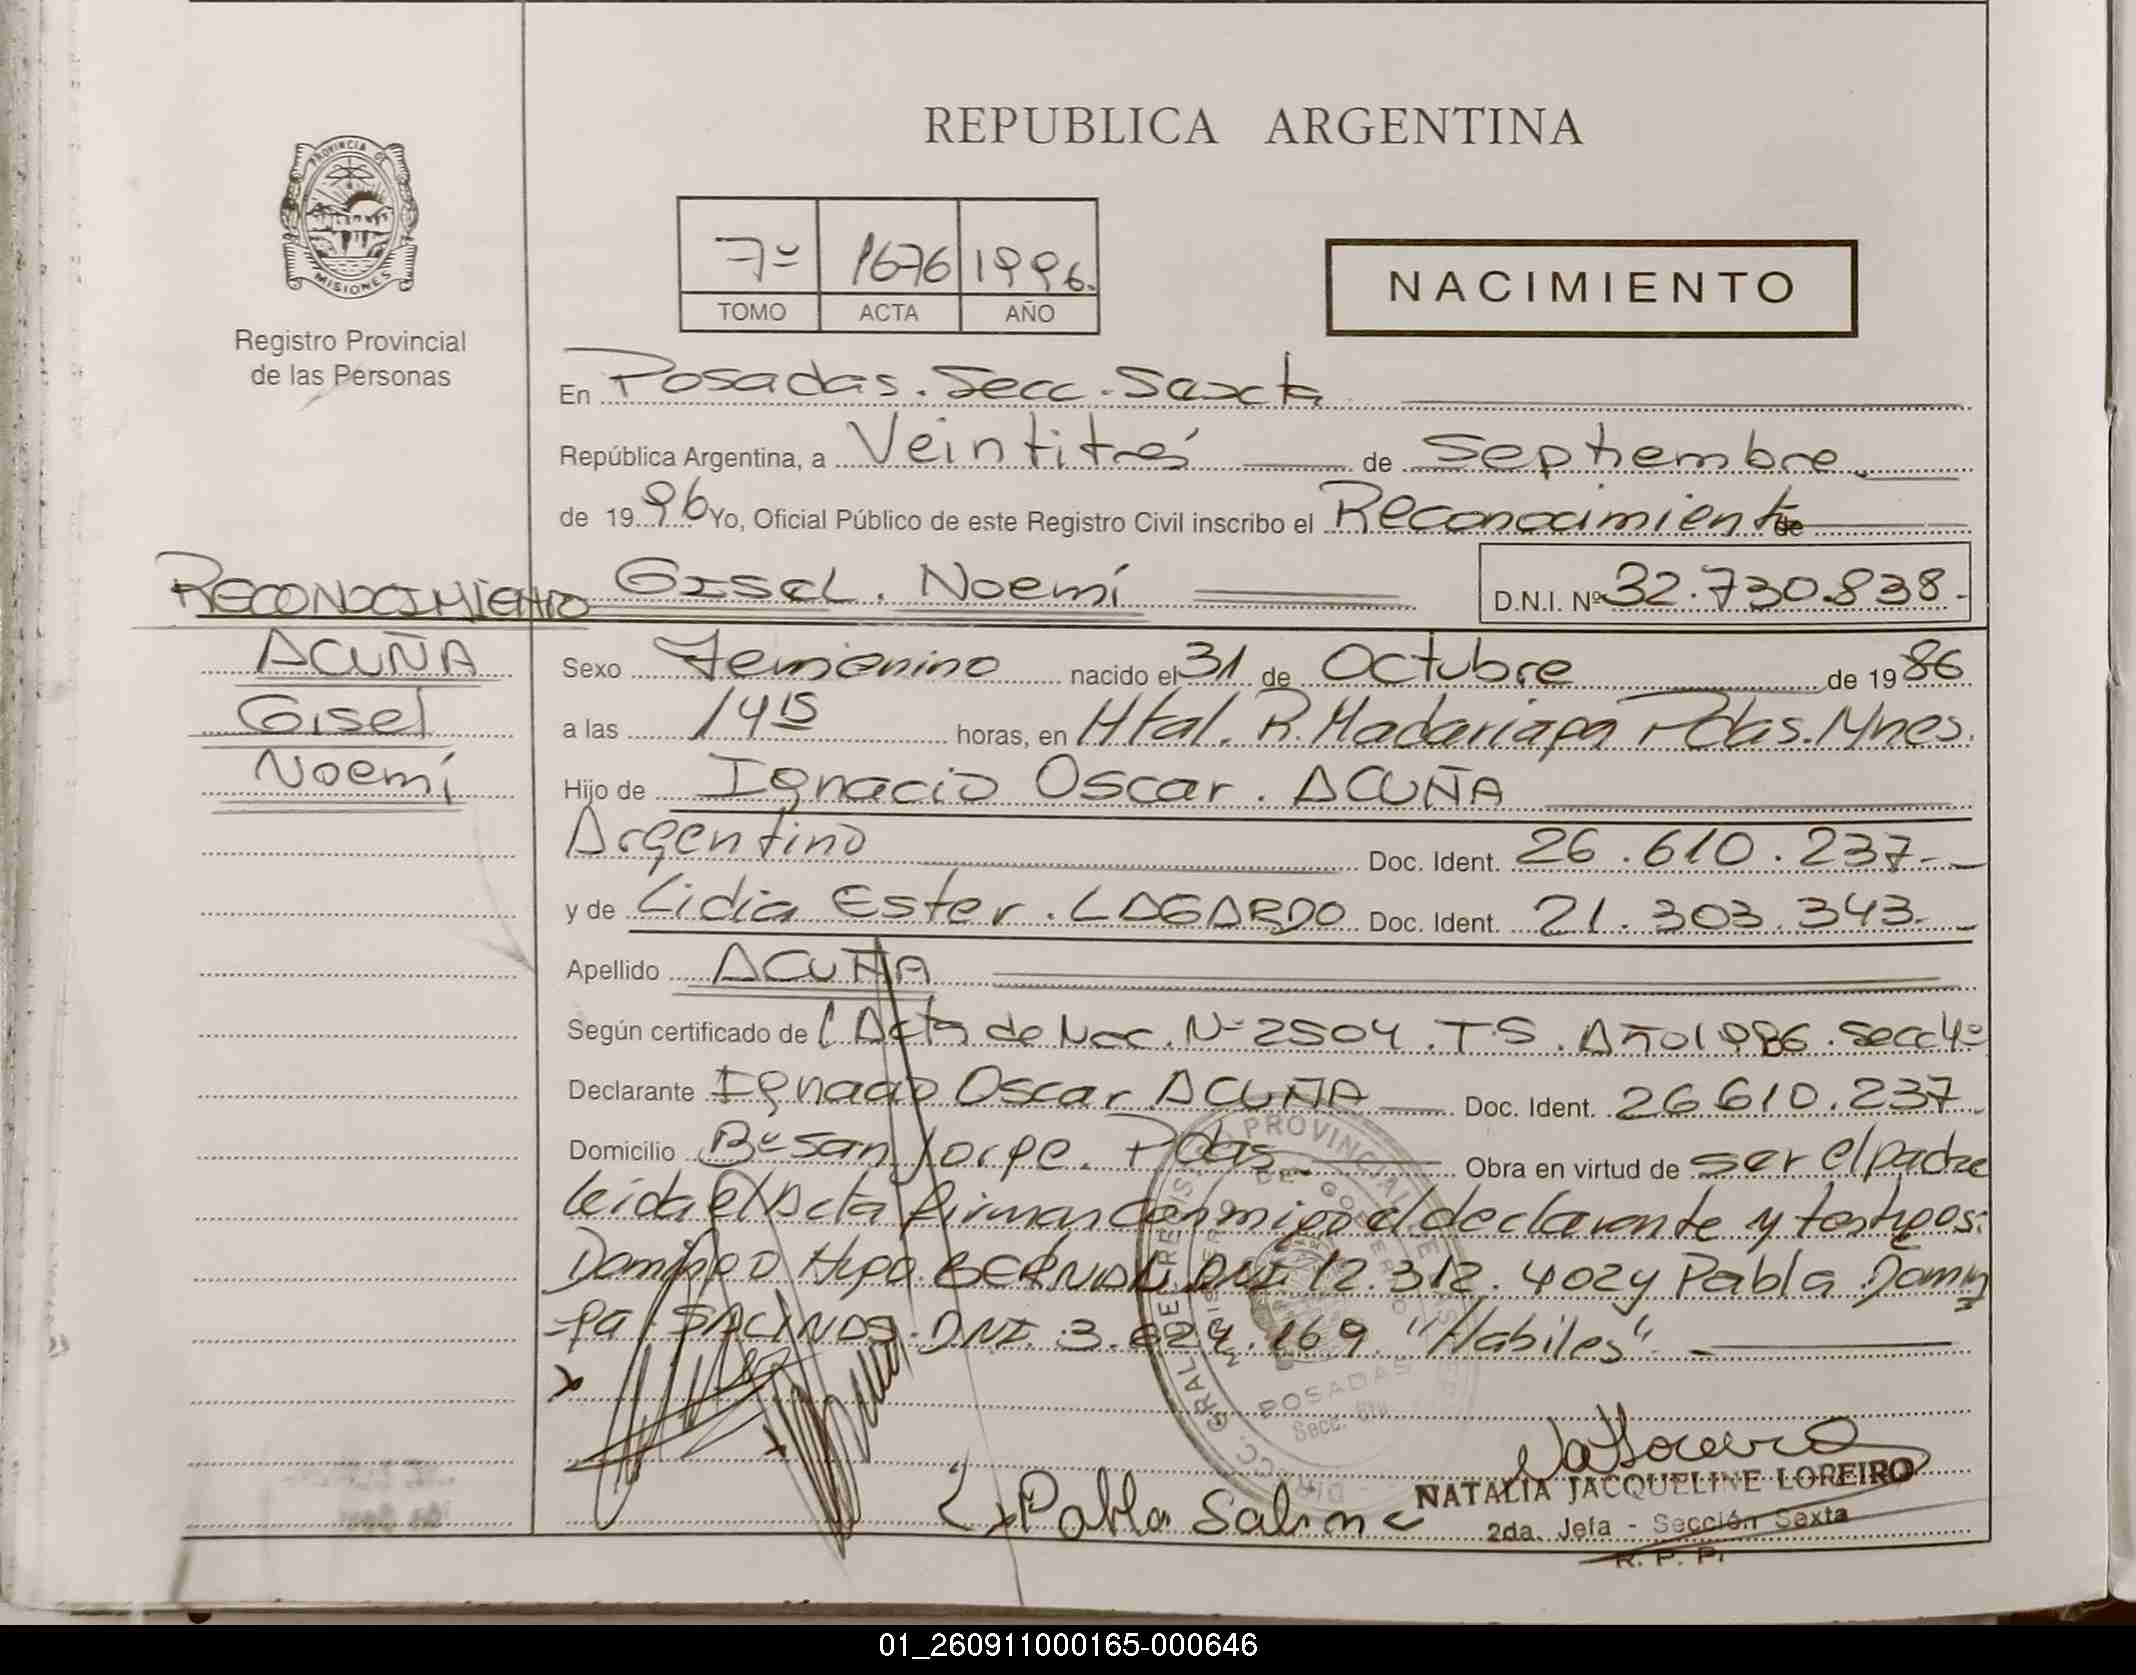 REPUBLICA ARGENTINA
PROVINCIA DE
MISIONES
Registro Provincial
de las Personas
7º 1676 1996.
TOMO ACTA AÑO
NACIMIENTO
En Posadas. Secc. Sexta
República Argentina, a Veintitrés de Septiembre.
de 1996 Yo, Oficial Público de este Registro Civil inscribo el Reconocimiento de
RECONOCIMIENTO
ACUÑA
Gisel
Noemí
GISEL. Noemí D.N.I. Nº 32.730.838.-
Sexo Femenino nacido el 31 de Octubre de 1986
a las 14 15 horas, en Htal. R. Madariaga Pdas. Mnes.
Hijo de Ignacio Oscar. ACUÑA
Argentino Doc. Ident. 26.610.237.-
y de Lidia Ester. LAGARDO Doc. Ident. 21.303.343.-
Apellido ACUÑA
Según certificado de Acta de Nac. Nº 2504. T5. Año 1986. Secc 4º
Declarante Ignacio Oscar ACUÑA Doc. Ident. 26.610.237
Domicilio Bº San Jorge. Pdas. Obra en virtud de ser el padre
leida el Acta firman conmigo el declarante y testigos:
Domingo Hugo DNI. 12.312.402 y Pabla Domin
-ga SALINAS. DNI. 169. "Habiles".
POSADAS
Pabla Saline
NATALIA JACQUELINE LOREIRO
2da. Jefa - Sección Sexta
R. P. P.
01_260911000165-000646